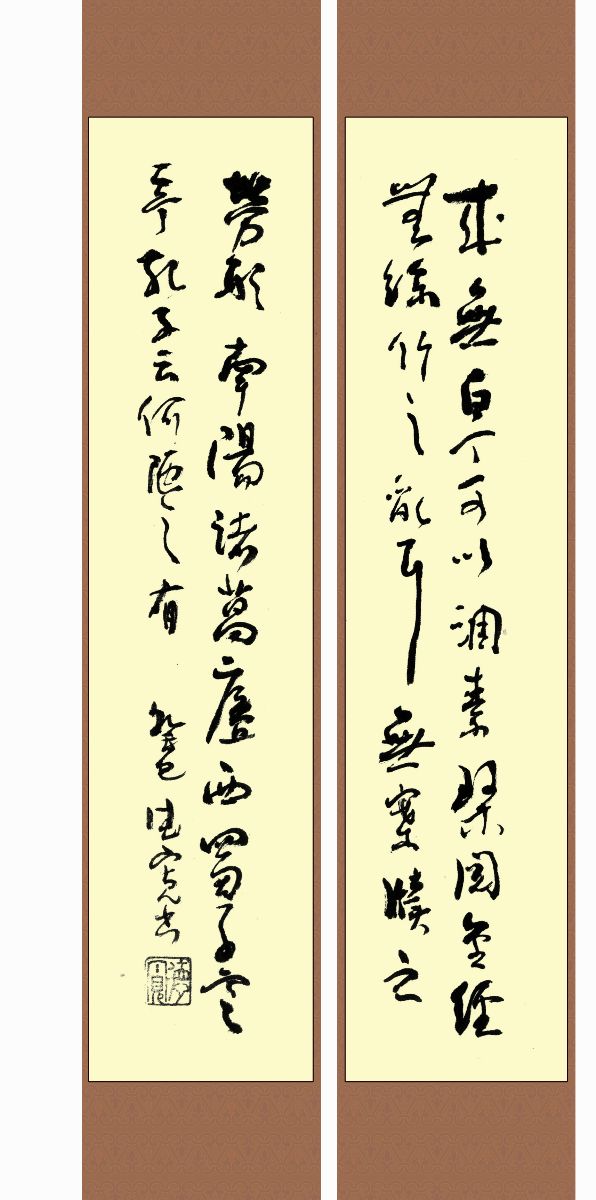 來無白丁可以調素琴閱金經
無絲竹之亂耳無案牘之
勞形南陽諸葛廬西蜀子雲
亭孔子云何陋之有 癸巳 寬書